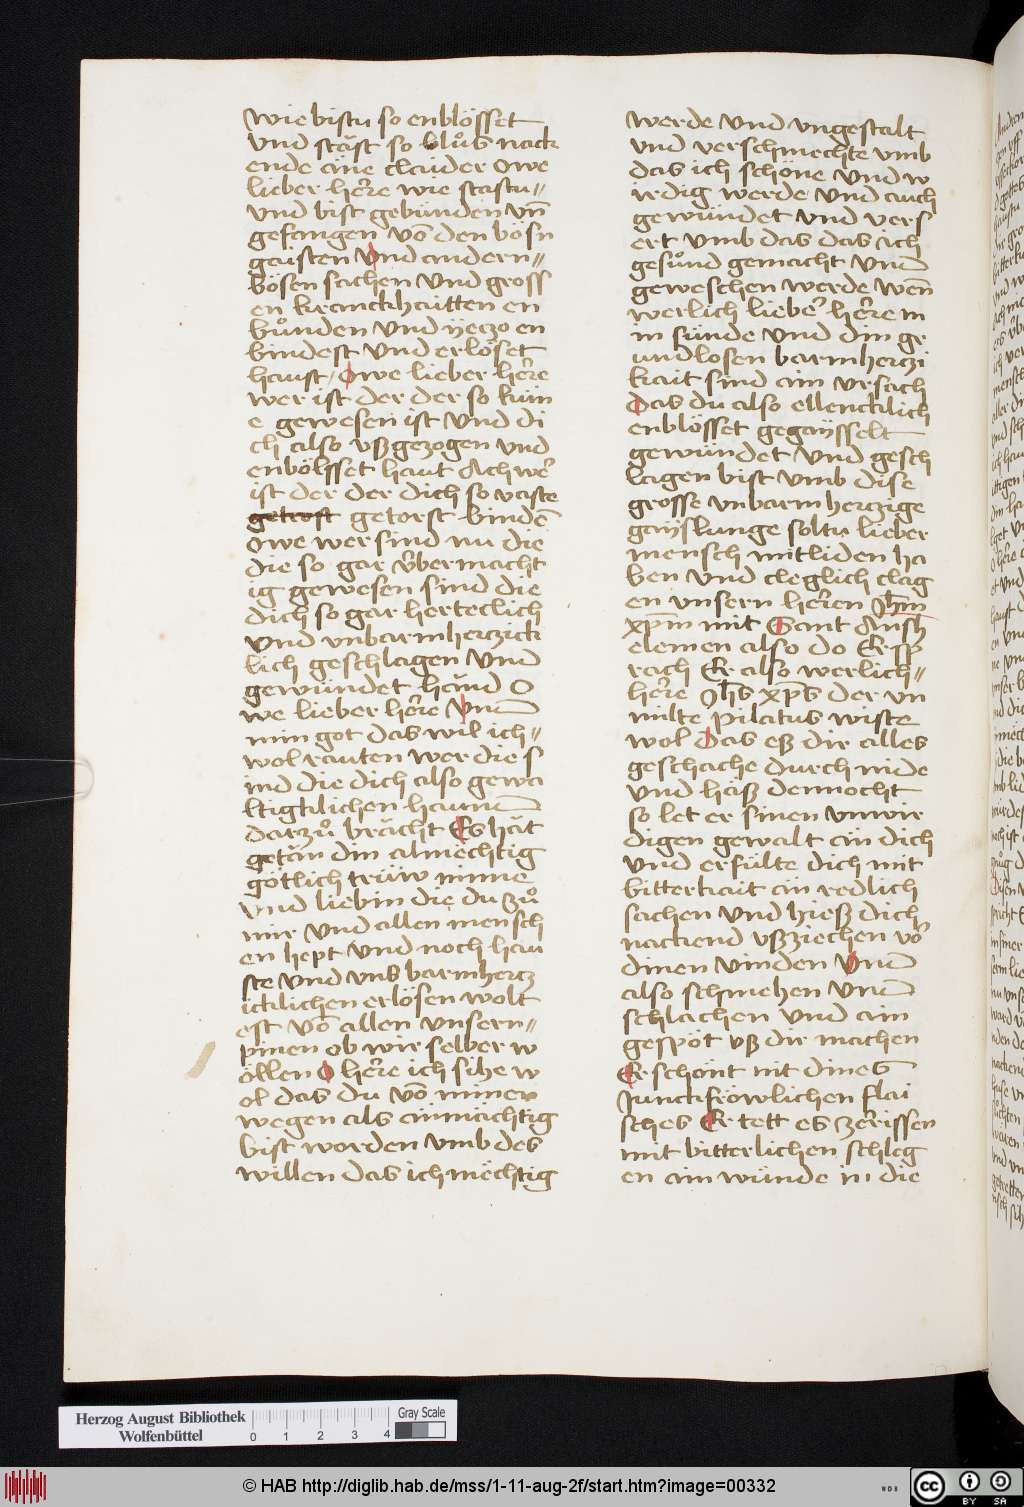 wie bistu so enblösset
vnd stäst so blůs nack
ende äne claider owe
lieber her̄e wie stastu=
vnd bist gebünden vn̄
gefangen vō den bösn
gaisten Vnd andern=
bösen sachen vnd gross
en kranckhaitten en
bůnden vnd yeczo en
bindest vnd erlöset
haust / Owe lieber her̄e
wer ist der der so kün
e gewesen ist vnd di
ch also vßgezogen vnd
enbölsset haut Ach wer̄
ist der der dich so vaste
getrost getorst bindē
Owe wer sind nu die
die so gar v̈bermacht
ig gewesen sind die
dich so gar herteclich
vnd vnbarmherczick
lich geschlagen vnd
gewündet händ O
we lieber her̄e Vnd
min got das wil ich=
wol rauten wer die s
ind die dich also gewa
ltigklichen haund
darzů brächt Es hät
getän din almëchtig
götlich trüw minne
vnd liebin die du zů
mir vnd allen mensch
en hept vnd noch hau
ste vnd vns barmhercz
icklichen erlösen wolt
est vō allen vnsern=
pinen ob wir selber w
öllen O her̄e ich sihe w
ol das du vō minen
wegen als ainmächtig
bist worden vmb des
willen das ich mëchtig
werde vnd vngestalt
vnd verschmechte vmb
das ich schöne vnd w
irdig werde vnd auch
gewündet vnd vers
ert vmb das das ich
gesůnd gemacht vnd
geweschen werde wen̄
werlich lieber̄ her̄e m
in sünde vnd din gr
undlosen barmherczi
kait sind ain vrsach
Das du also ellencklich
enblösset gegaÿsselt
gewündet vnd gesch
lagen bist vmb dise
grosse vnbarmherczige
gaÿslunge soltu lieber
mensch mitliden ha
ben vnd cleglich clag
en vnsern her̄en Jhm̄
xpm̄ mit Sant Ansh
elemen also do Er sp
rach Er also werlich=
her̄e Jhs̄ xps̄ der vn
milte pilatus wiste
wol Das eß dir alles
geschache durch nide
vnd häß dennocht
so let er sinen vnwir
digen gewalt än dich
vnd erfülte dich mit
bitterkait än redlich
sachen vnd hieß dich
nackend vßziechen vor̄
dinen vinden Vnd
also schmehen vnd
schlachen vnd ain
gespöt vß dir machen
Er schönt nit dines
Junckfröwlichen flai
sches Er tett es zer̄issen
mit bitterlichen schleg
en ain wünde in die
Herzog August Bibliothek
Wolfenbüttel
0 1 2 3 4
Gray Scale
© HAB http://diglib.hab.de/mss/1-11-aug-2f/start.htm?image=00332
WDB
cc BY SA